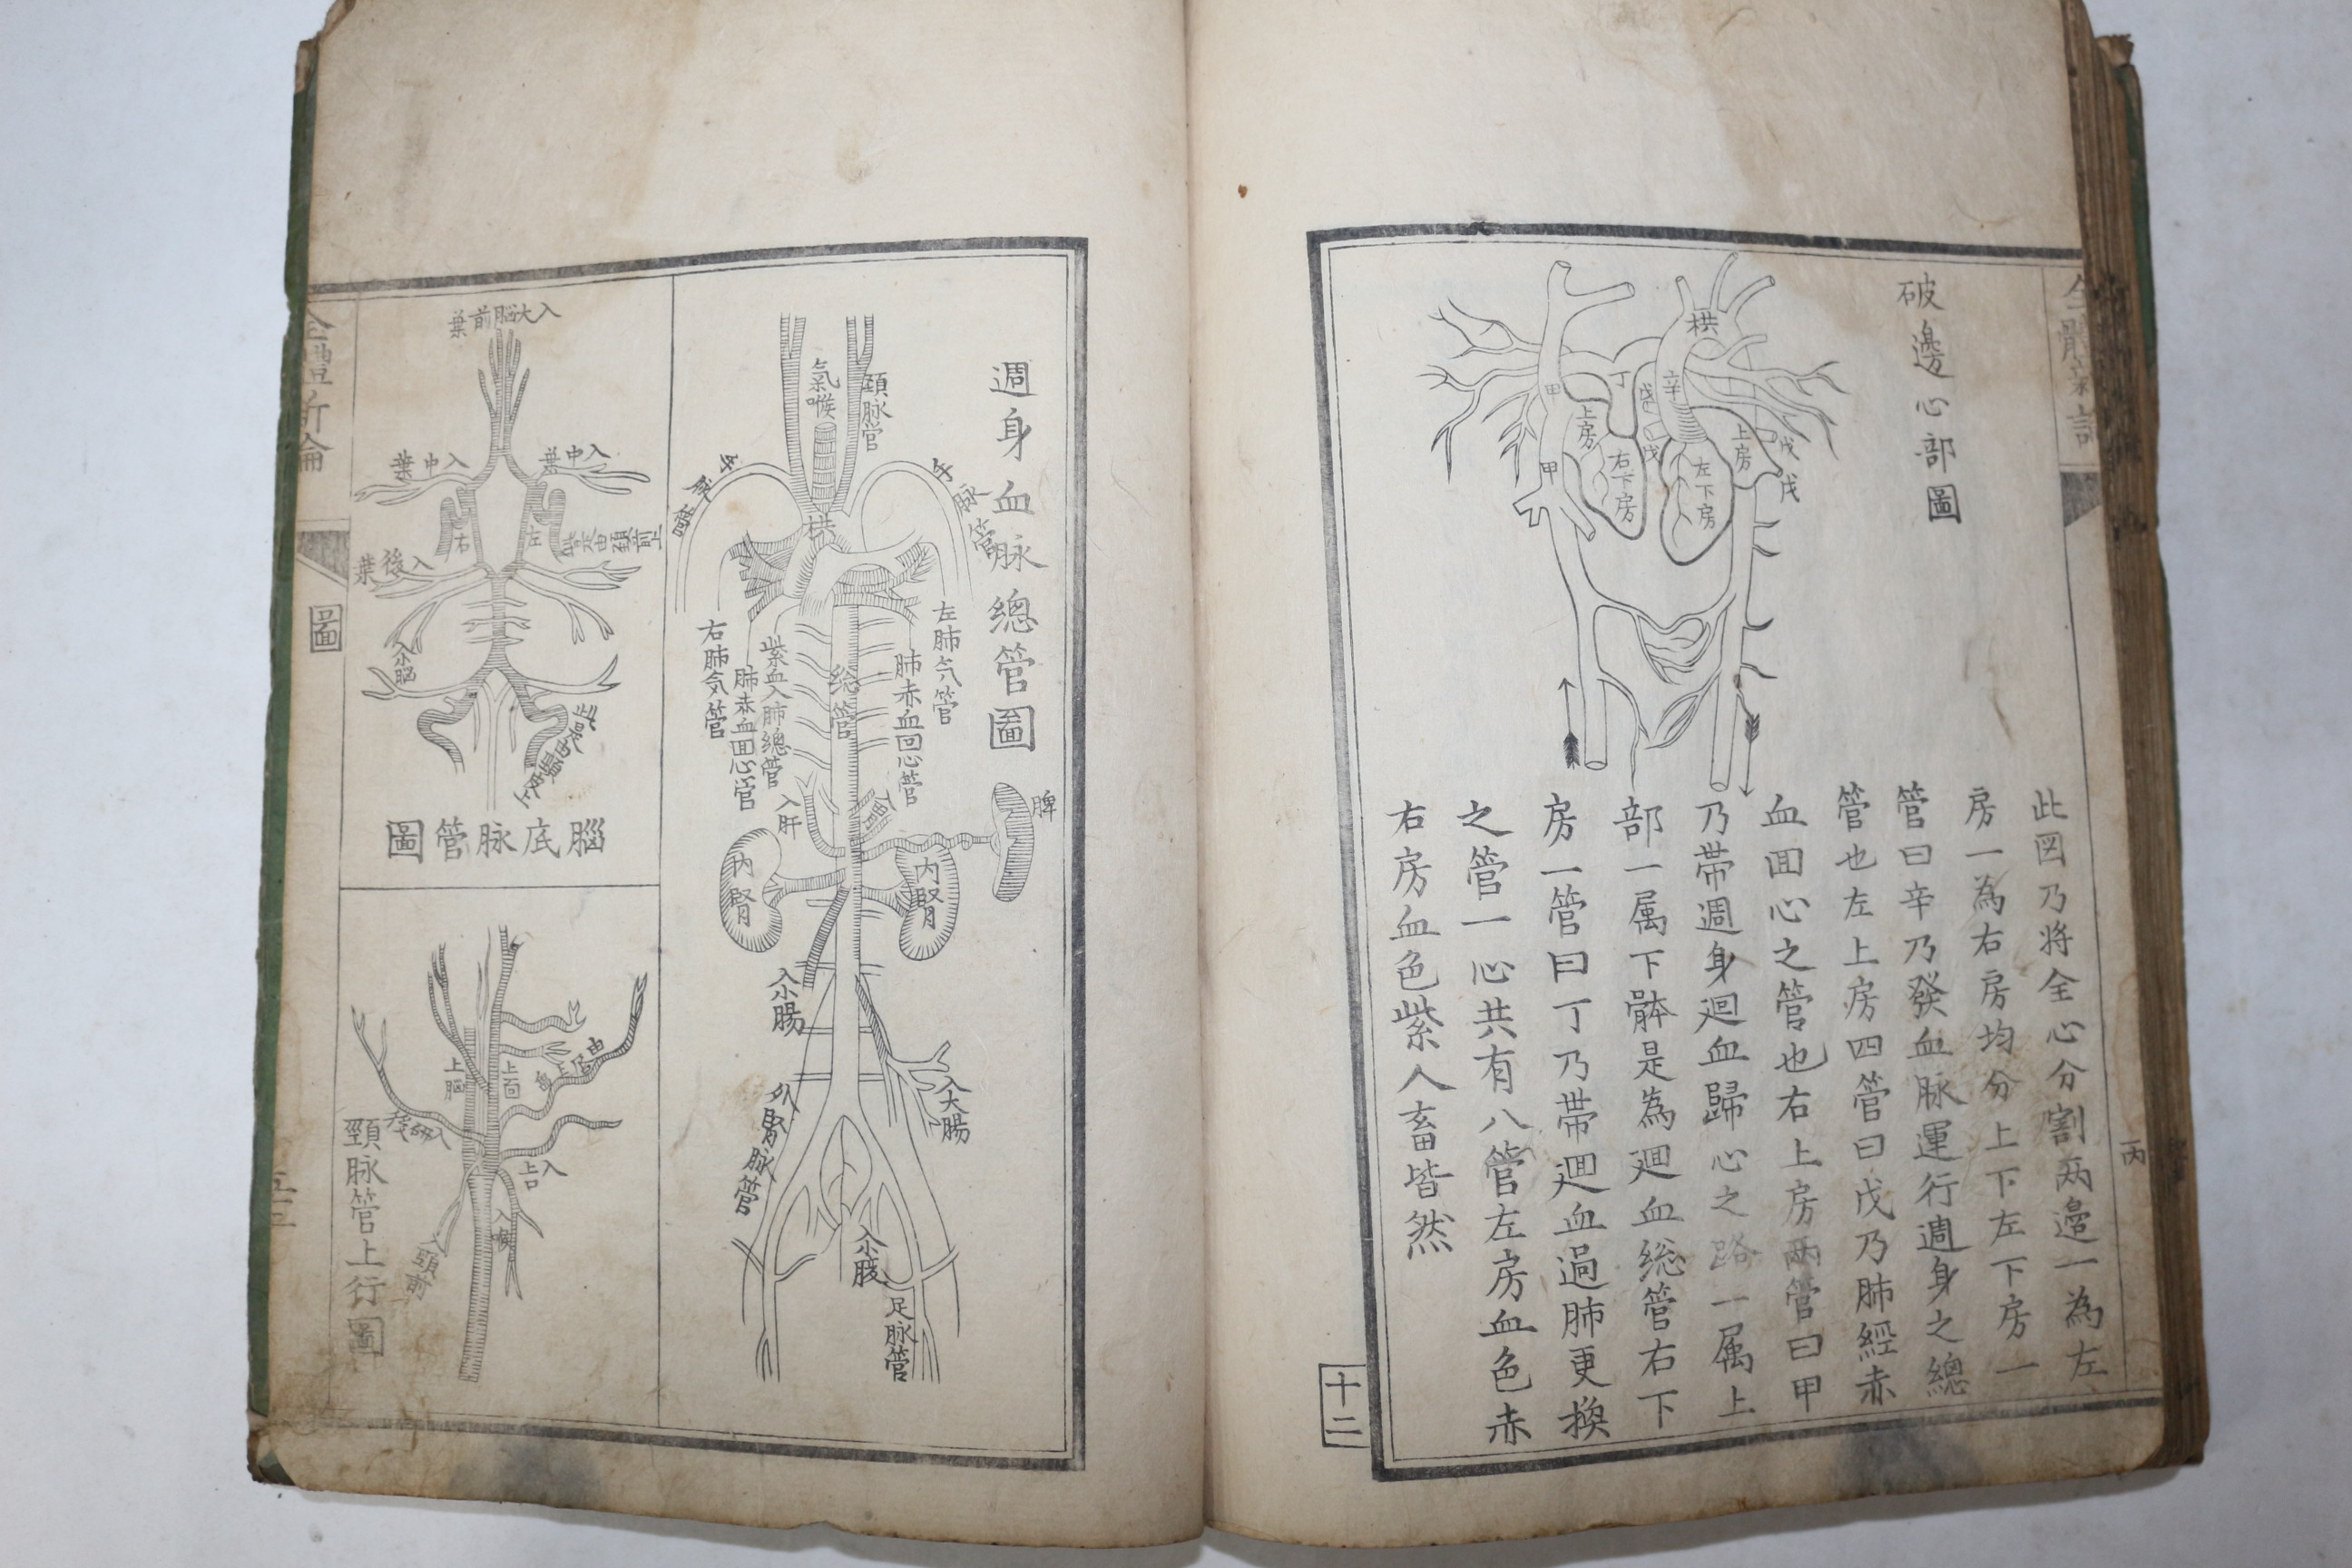 破邊心部圖
栱
丁
辛
戊
甲
上房
上房
戊
戊
戊
甲
右下房
左下房
此図乃将全心分割两邉一為左
房一為右房均分上下左下房一
管曰辛乃發血脉運行週身之總
管也左上房四管曰戊乃肺經赤
血囬心之管也右上房两管曰甲
乃帶週身迴血歸心之路一属上
部一属下骵是為廽血総管右下
房一管曰丁乃帶廽血過肺更換
之管一心共有八管左房血色赤
右房血色紫人畜皆然
丙
十二
週身血脉總管圖
氣喉
頸脉管
手脉管
手脉管
栱
左肺気管
右肺気管
肺赤血回心管
紫血入肺總管
肺赤血囬心管
総管
入肝
入胃
脾
内腎
内腎
入小腸
入大腸
外腎脉管
足脉管
入大脳前葉
入中葉
入中葉
右
左
入後葉
入小脳
腦底脉管圖
上脳
上面
入舌
入喉
入頸前
頸脉管上行圖
圖